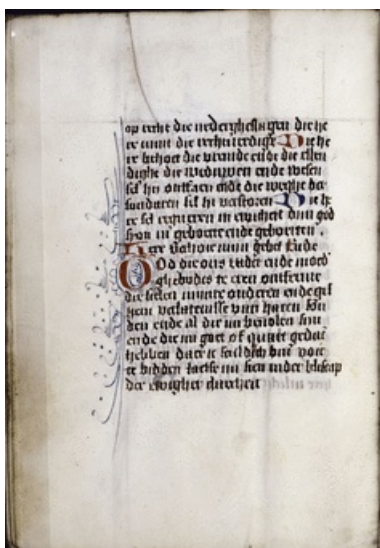 op recht die nedergheslagen die he
re mint die rechtuerdighe Die he
re behoet die vremde ende die ellen
dighe die weduwen ende wesen
sel hi ontfaen ende die weghe der
sondaren sel hi verstoren Die he
re sel regneren in ewicheit dijn god
syon in geboerte ende geboerten.
Here gebet Ende
God die ons vader ende moed
geboedes te eren ontferme
die sielen ende
hem verlatenisse van haren son
den ende al die mi beuolen sijn
ende die mi goet of quaet gedaen
hebben daer ic sculdich bin voer
te bidden laetse mi sien inder bliscap
der ewigher claerheit